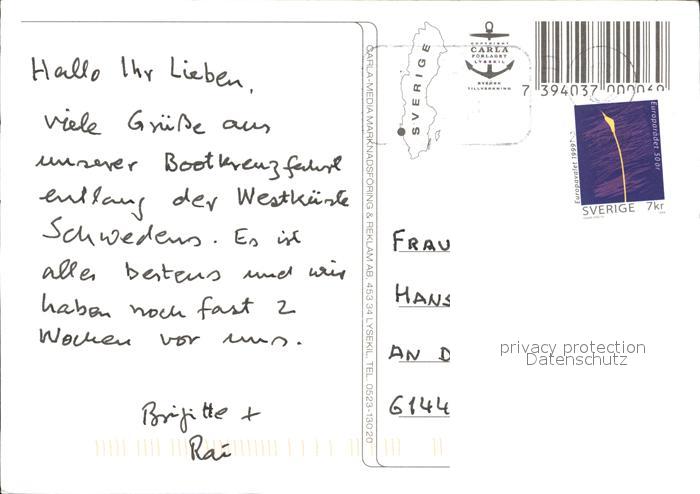 Hallo Ihr Lieben,
viele Grüße aus
unserer Bootkreuzfahrt
entlang der Westküste
Schwedens. Es ist
alles bestens und wir
haben noch fast 2
Wochen vor uns.
Brigitte +
Rai
CARLA-MEDIA MARKNADSFÖRING & REKLAM AB, 453 34 LYSEKIL, TEL. 0523-130 20
SVERIGE
COPYRIGHT
CARLA
FÖRLAGET
LYSEKIL
SVENSK
TILLVERKNING
7 394037 000060
Europavalet 1999
Europarådet 50 år
SVERIGE 7kr
FRAU
HANS
AN D
6144
privacy protection
Datenschutz